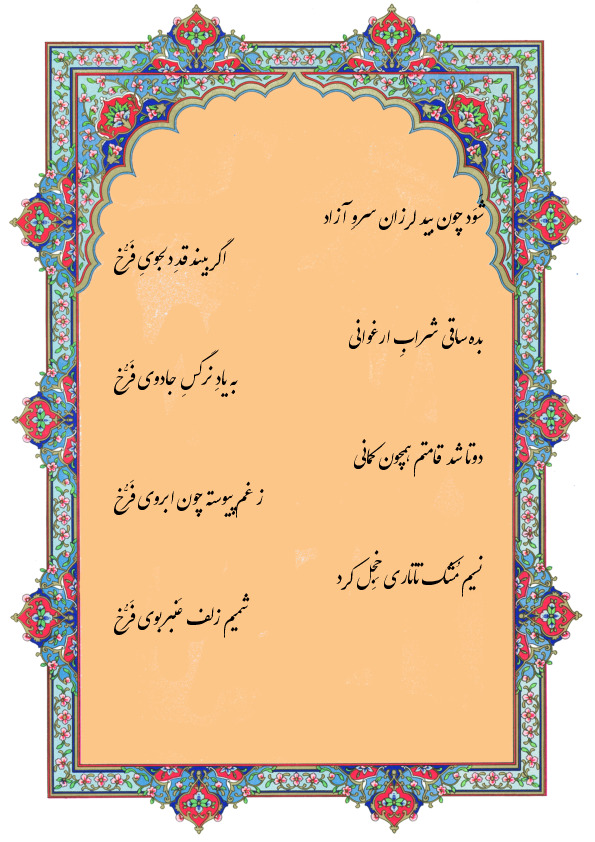 شَوَد چون بید لرزان سروِ آزاد
اگر بیند قدِ دلجویِ فَرُّخ
بده ساقی شرابِ ارغوانی
به یادِ نرگسِ جادوی فَرُّخ
دوتا شد قامتم همچون کمانی
ز غم پیوسته چون ابروی فَرُّخ
نسیمِ مُشک تاتاری خَجِل کرد
شمیم زلف عَنبربوی فَرُّخ